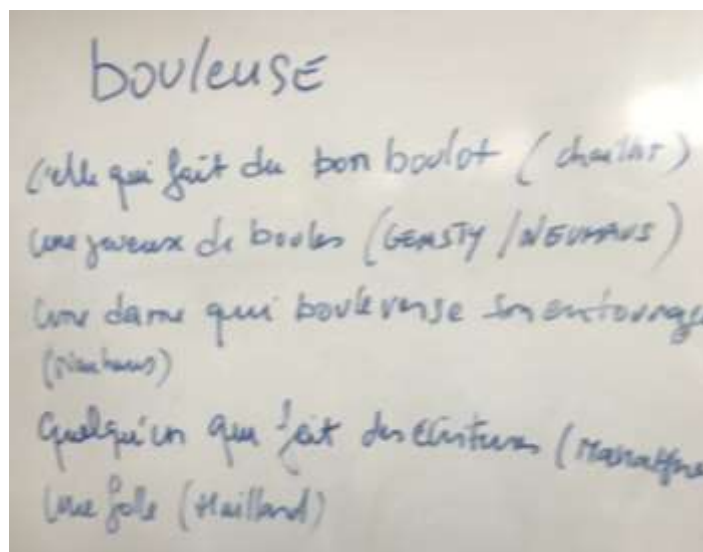 bouleuse
Celle qui fait du bon boulot (
une joueux de boules (GENSTY / NEUHAUS)
une dame qui bouleverse son entourage
(Neuhaus)
Quelqu'un qui fait des
une folle (Maillard)